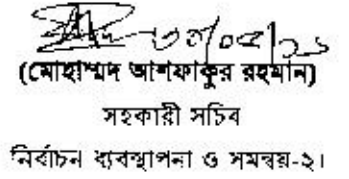 (মোহাম্মদ আশফাকুর রহমান)
সহকারী সচিব
নির্বাচন ব্যবস্থাপনা ও সমন্বয়-২।